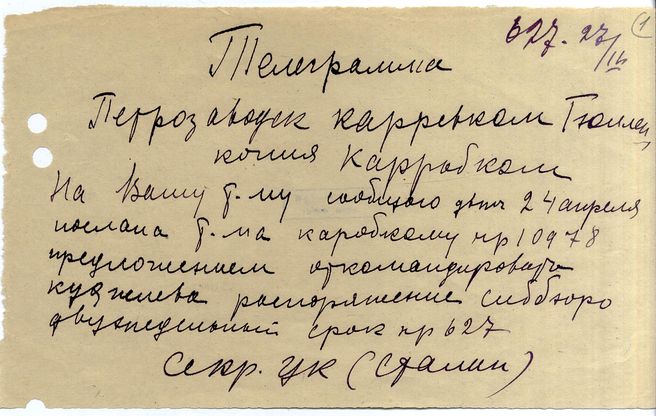 627. 27/IV
1
Телеграмма
Петрозаводск карревком Гюллен
копия Карробком
На Вашу т-му сообщаю дтч 24 апреля
послана т-ма каробкому нр 10978
предложением откомандировать
куджиева распоряжение Сиббюро
двухнедельный срок нр 627
Секр. ЦК (Сталин)